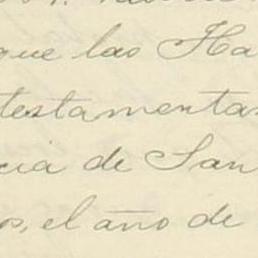 que las Ha
testamentas
cia de San
os, el año de